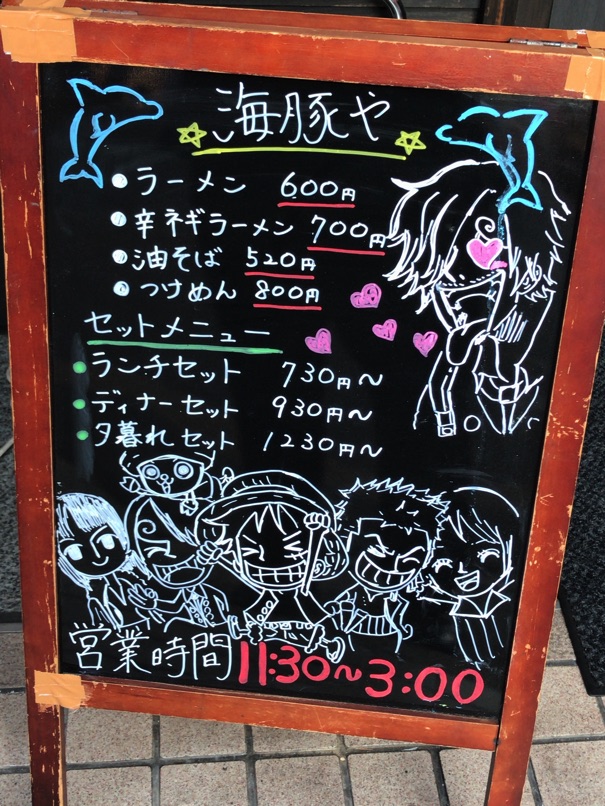 海豚や
ラーメン 600円
辛ネギラーメン 700円
油そば 520円
つけめん 800円
セットメニュー
ランチセット 730円～
ディナーセット 930円～
夕暮れセット 1230円～
営業時間 11:30～3:00